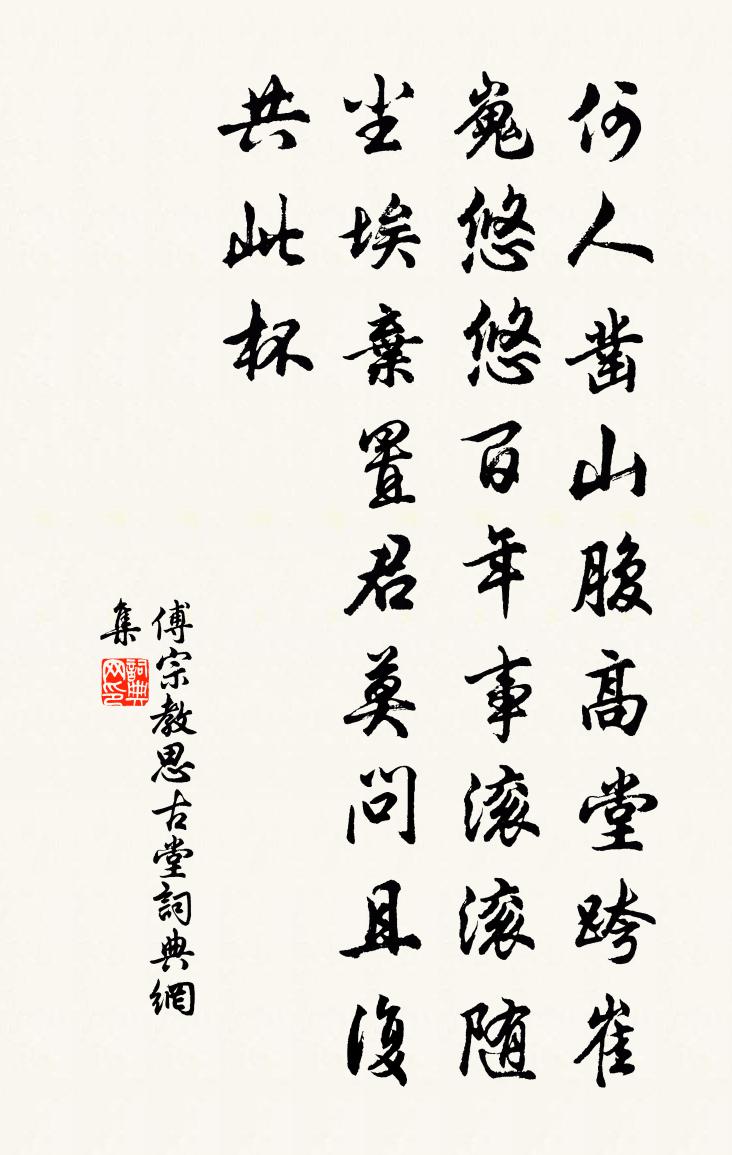 何人凿山腹高堂跨崔
嵬悠悠百年事滚滚随
尘埃棄置君莫问且復
共此杯
傅宗教思古堂詞典網
集
詞典
网印